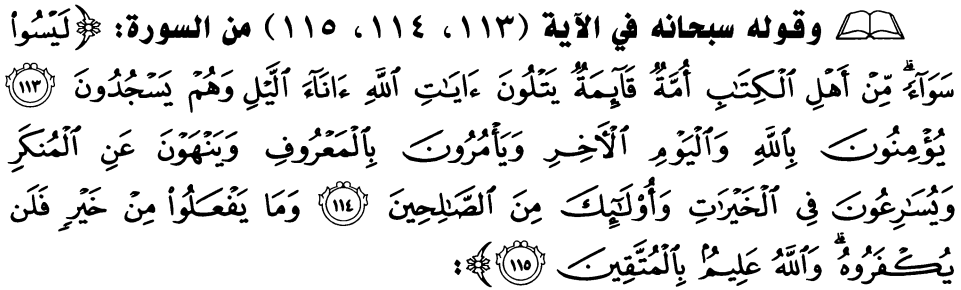 وقوله سبحانه في الآية (١١٣، ١١٤، ١١٥) من السورة: ﴿لَيۡسُواْ
سَوَآءٗۗ مِّنۡ أَهۡلِ ٱلۡكِتَٰبِ أُمَّةٞ قَآئِمَةٞ يَتۡلُونَ ءَايَٰتِ ٱللَّهِ ءَانَآءَ ٱلَّيۡلِ وَهُمۡ يَسۡجُدُونَ ١١٣
يُؤۡمِنُونَ بِٱللَّهِ وَٱلۡيَوۡمِ ٱلۡأٓخِرِ وَيَأۡمُرُونَ بِٱلۡمَعۡرُوفِ وَيَنۡهَوۡنَ عَنِ ٱلۡمُنكَرِ
وَيُسَٰرِعُونَ فِي ٱلۡخَيۡرَٰتِ وَأُوْلَٰٓئِكَ مِنَ ٱلصَّٰلِحِينَ ١١٤ وَمَا يَفۡعَلُواْ مِنۡ خَيۡرٖ فَلَن
يُكۡفَرُوهُۗ وَٱللَّهُ عَلِيمُۢ بِٱلۡمُتَّقِينَ ١١٥﴾: